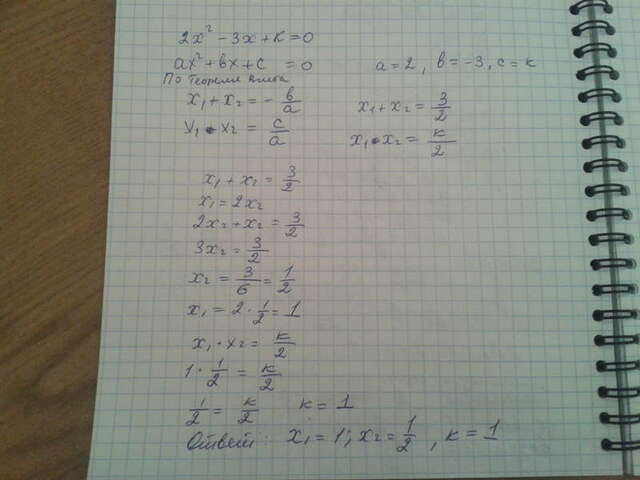 2x² - 3x + k = 0
ax² + bx + c = 0 a = 2, b = -3, c = k
По теореме Виета
x₁ + x₂ = - b/a x₁ + x₂ = 3/2
x₁ • x₂ = c/a x₁ • x₂ = k/2
x₁ + x₂ = 3/2
x₁ = 2x₂
2x₂ + x₂ = 3/2
3x₂ = 3/2
x₂ = 3/6 = 1/2
x₁ = 2 · 1/2 = 1
x₁ · x₂ = k/2
1 · 1/2 = k/2
1/2 = k/2 k = 1
Ответ: x₁ = 1; x₂ = 1/2, k = 1